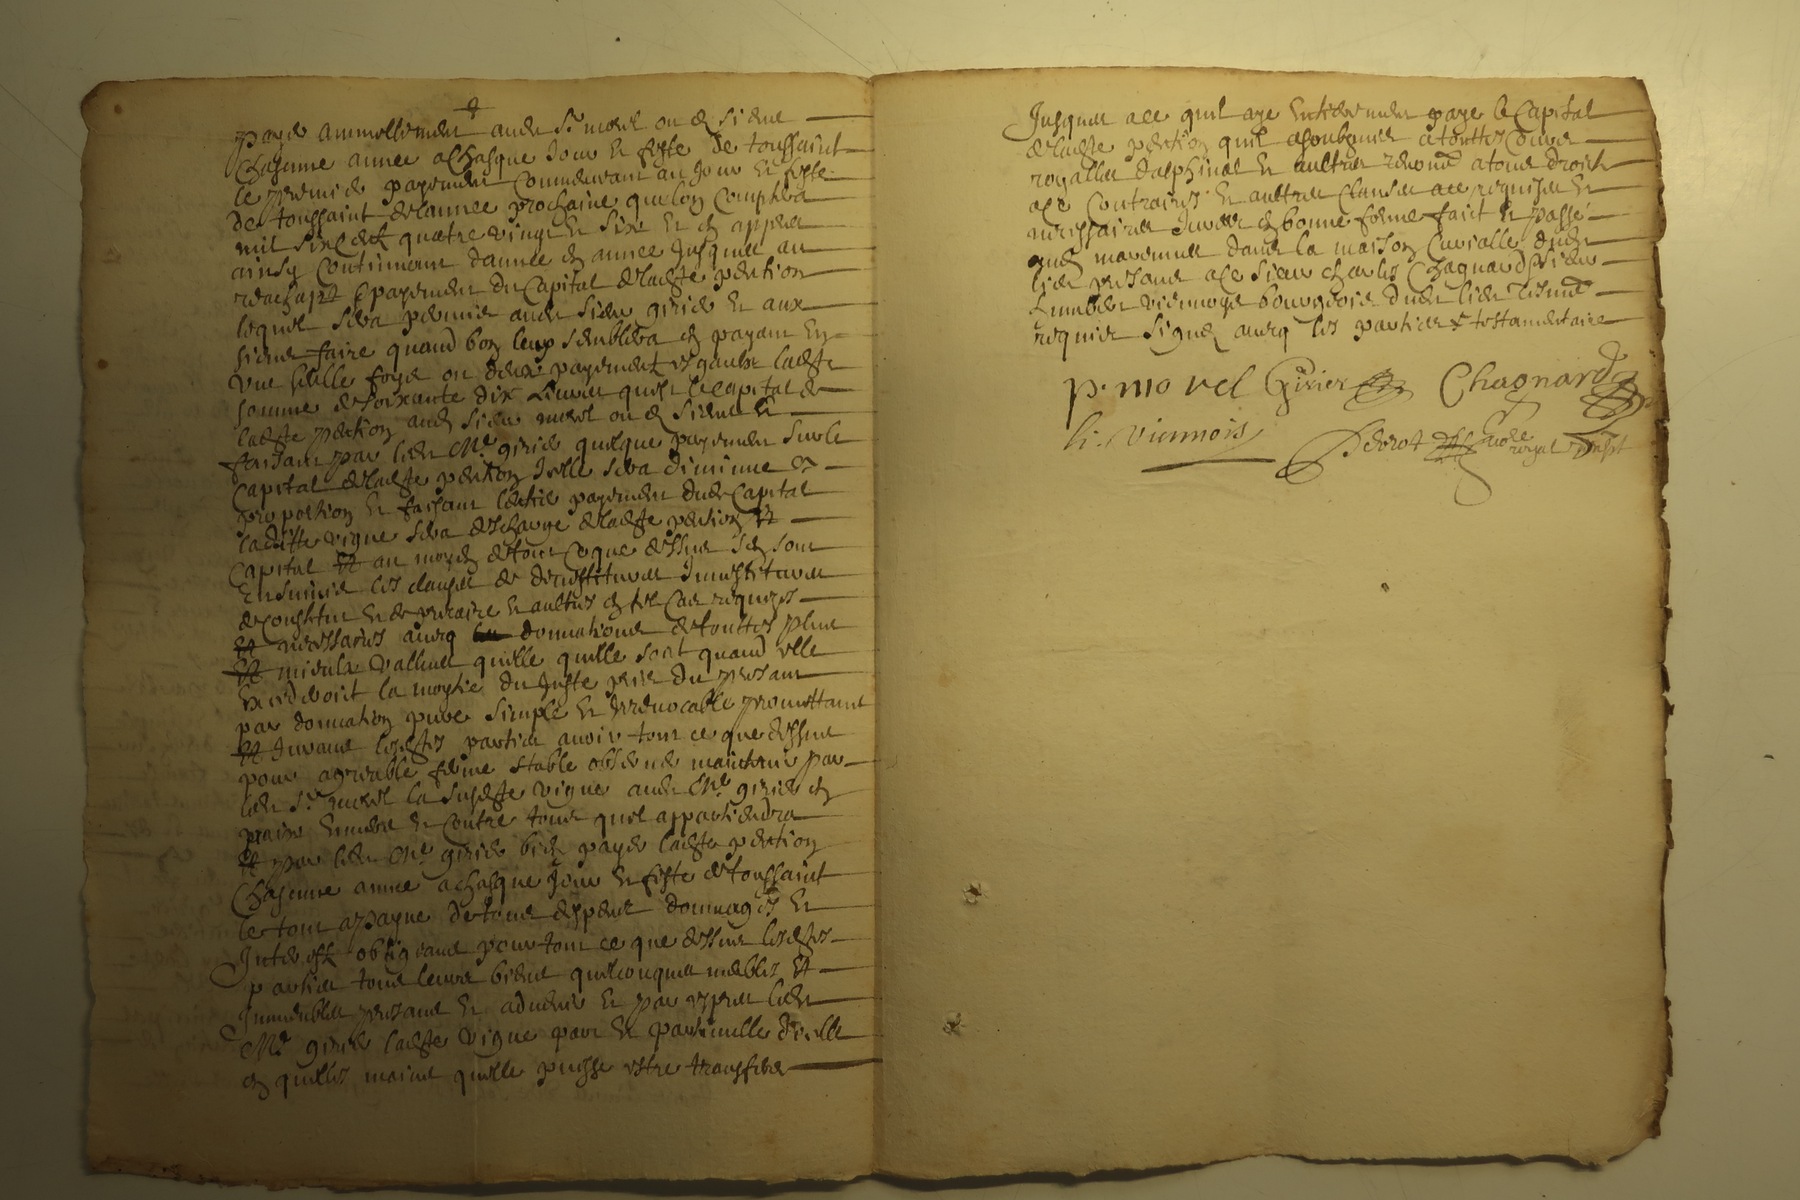 payer annuellement audit Sr morel ou es siens
Chascune annee a chasque Jour et feste de toussaint
le premier payement Commencant au Jour et feste
de toussaint de lannee prochaine que lon Comptera
mil six Cent quatre vingt et six et en appres
ainsy Continuant dannee en annee Jusques au
reachapt & payement du Capital de ladte pention
lequel sera permis audit sieur girier et aux
siens faire quand bon leur semblera en payant En
une seulle foys ou deux payements esgaulx ladte
somme de soixante dix Livres quest le capital de
ladte pention audit sieur morel ou es siens et
faisant par ledit Me girier quelque payement sur le
Capital de ladte pention Icelle sera diminue a
proportion et faisant lentier payement dudit Capital
laditte vigne sera deschargé de ladte pention Et
Capital Et au moyen de tout Ce que dessus sen sont
Ensuivis les clauses de devestitures Investitures
de constitut et de precaire et aultres en tel Cas requizes
Et necessaires avecq donnations de touttes plus
Et mieulx vallues quelle quelle soit quand elle
excederoit la moytie du Juste prix du presant
par donnation pure simple et Irrevocable promettant
Et Jurant lesdtes parties avoir tout ce que dessus
pour agreable ferme stable observer maintenir par
ledit Sr morel la susdte vigne audit Me girier en
paix Envers et Contre tous quil appartiendra
Et par ledit Me girier bien payer ladte pention
Chascune annee a chasque Jour et feste de toussaint
le tout a payne de tous despens dommages et
Interest obligeant pour tout ce que dessus lesdtes
parties tous leurs biens quelconques meubles Et
Immeubles presans et advenir et par expres ledit
Me girier ladte vigne part et partiinelle dicelle
en quelles mains quelle puisse estre transferer
Jusques a ce quil aye Entierement paye le Capital
de ladte pention quil a soubzmis a touttes Cours
royalles dalphinal et aultres renoncé a tous droits
a ce Contraires et aultres Clauses a ce requises et
necessaires Juree en bonne forme faict et passé
audit marennes dans la maison Curialle dudit
lieu presant a ce sieur charles Chagnard & sieur
Limbert viennoys bourgeois dudit lieu tesmoins
requis signes avecq les parties & testamentaire
p. morel Girier Chagnard
li. Viennois Notre royal